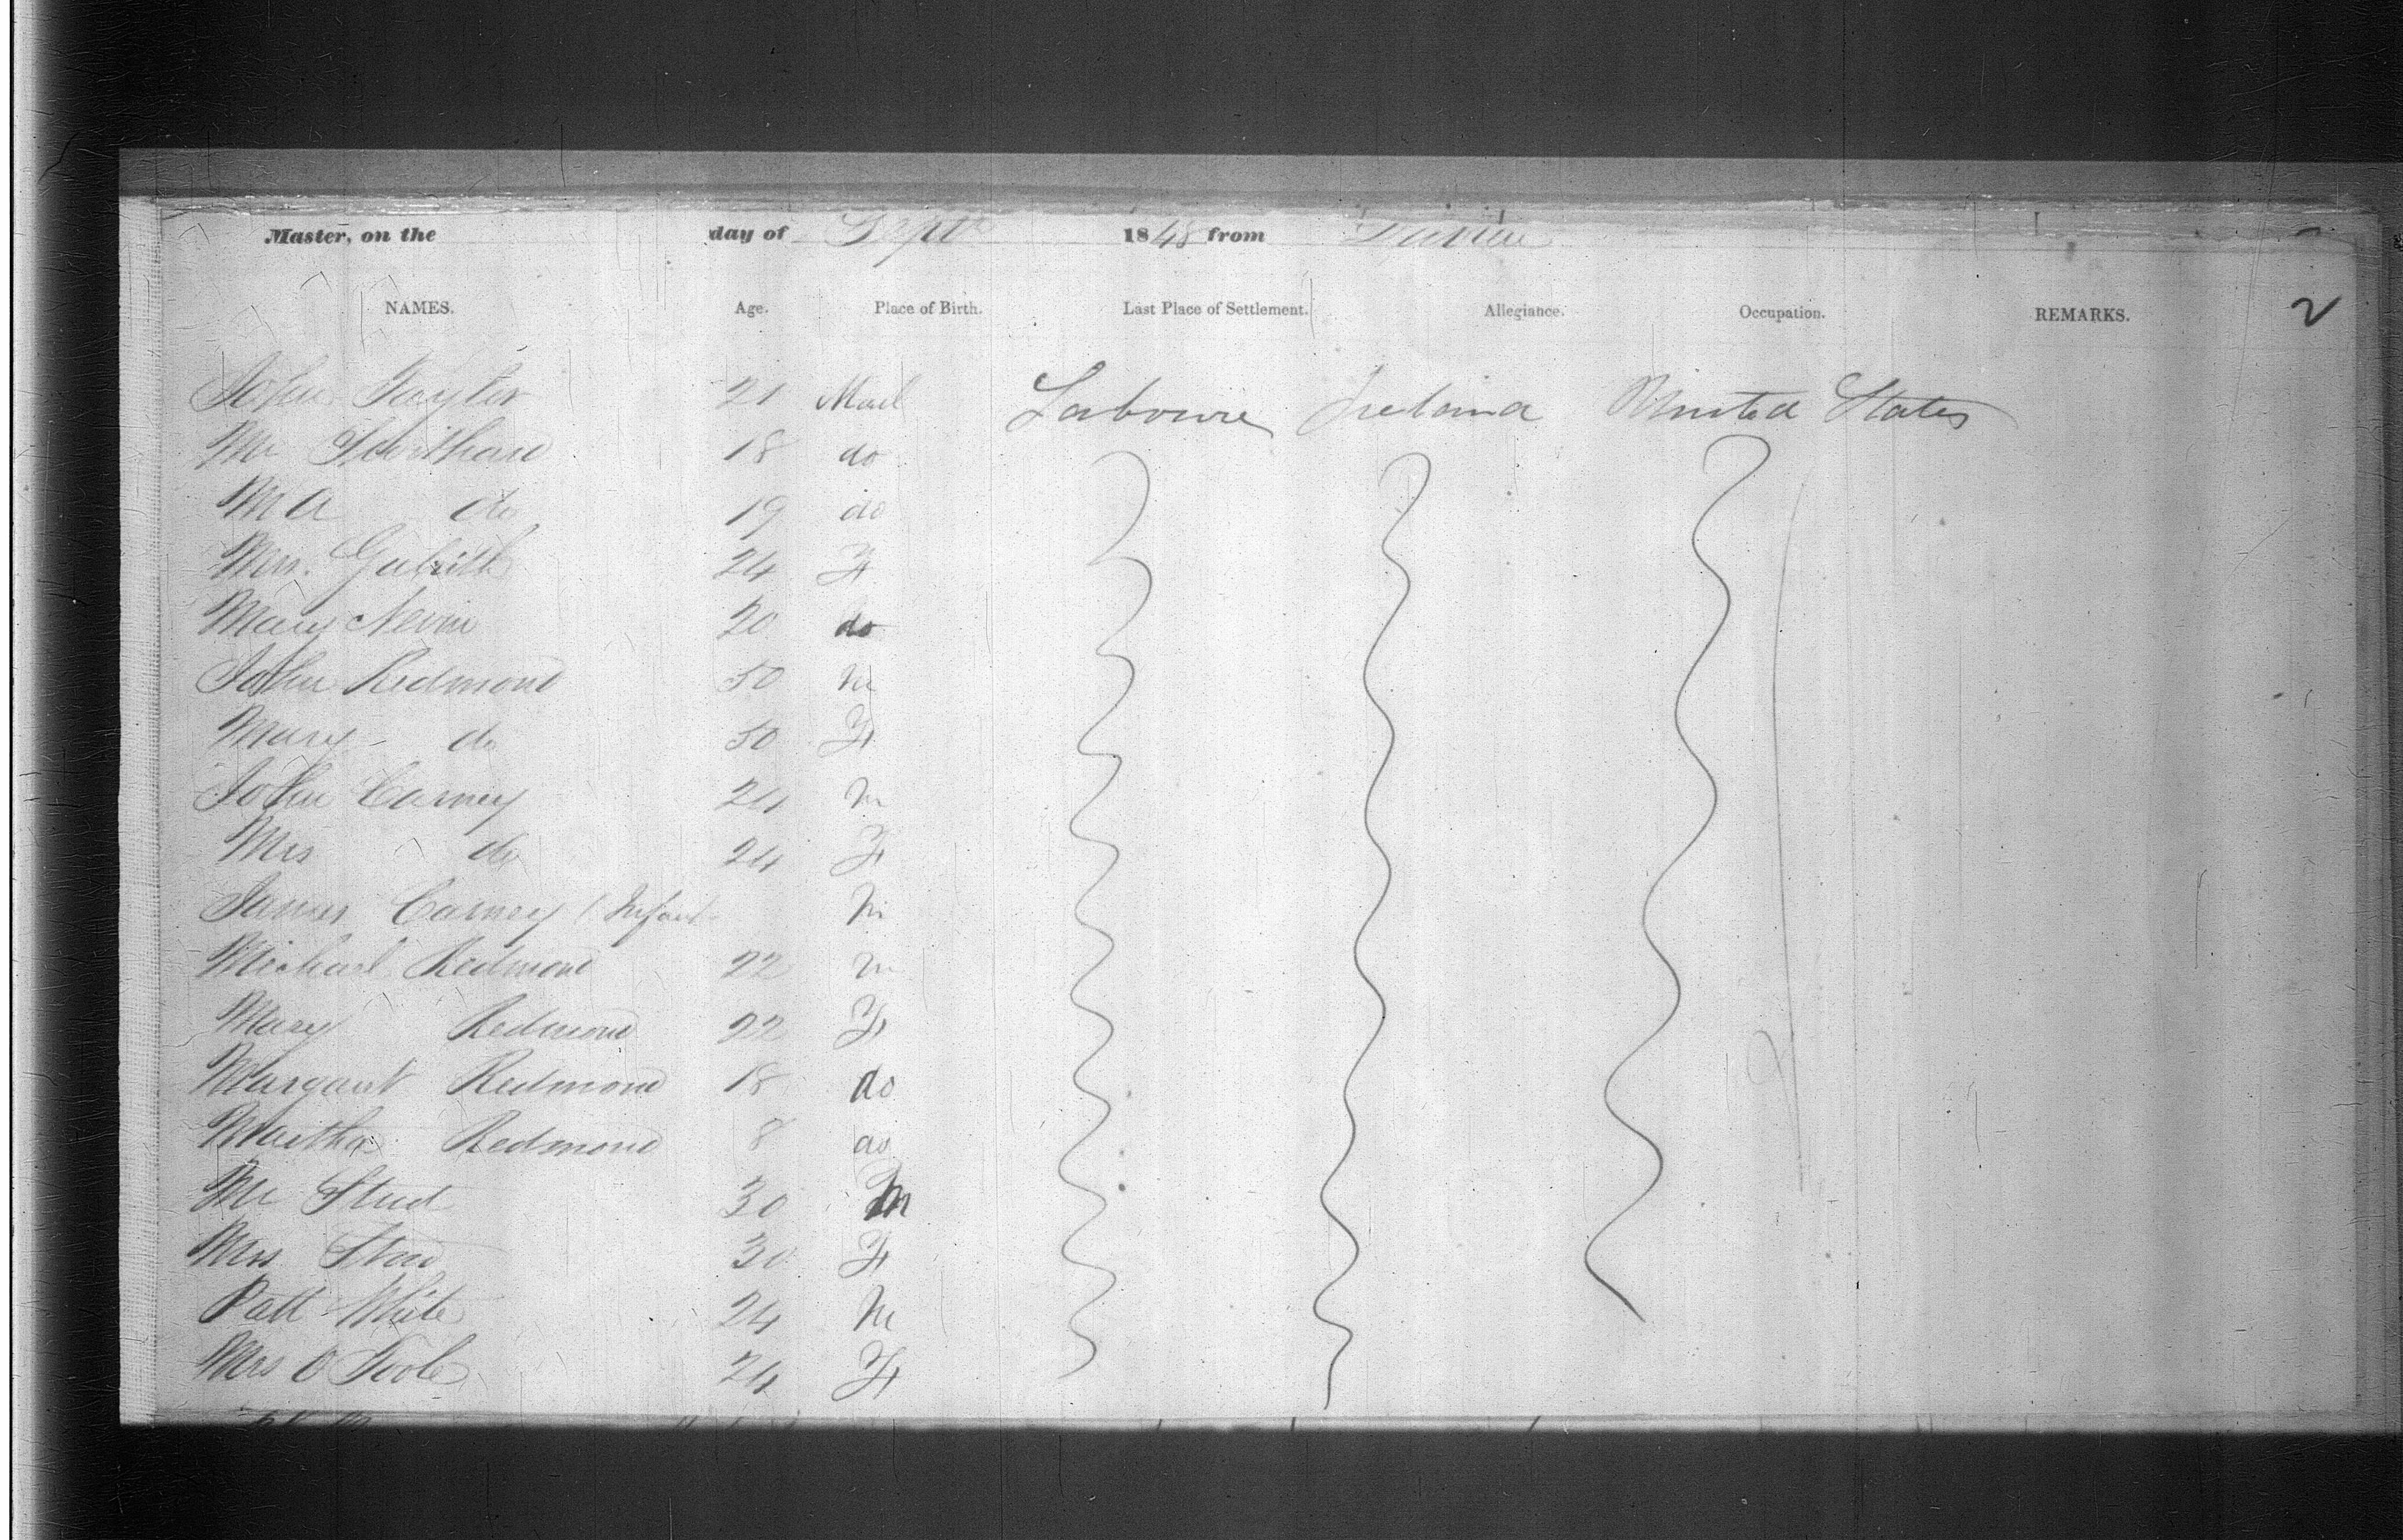 Master, on the day of Sept 1848 from
NAMES. Age. Place of Birth. Last Place of Settlement. Allegiance. Occupation. REMARKS. 2
John Taylor 21 Mail Laboure Ireland United States
Mr 18 do
M A do 19 do
Mrs. 24 F
Mary Nevin 20 do
John Redmond 50 M
Mary do 50 F
John Carney 24 M
Mrs do 24 F
James Carney (Infant M
Michael Redmond 22 M
Mary Redmond 22 F
Margaret Redmond 18 do
Martha Redmond 8 do
Mr 30 M
Mrs 30 F
Patt White 24 M
Mrs O Toole 24 F